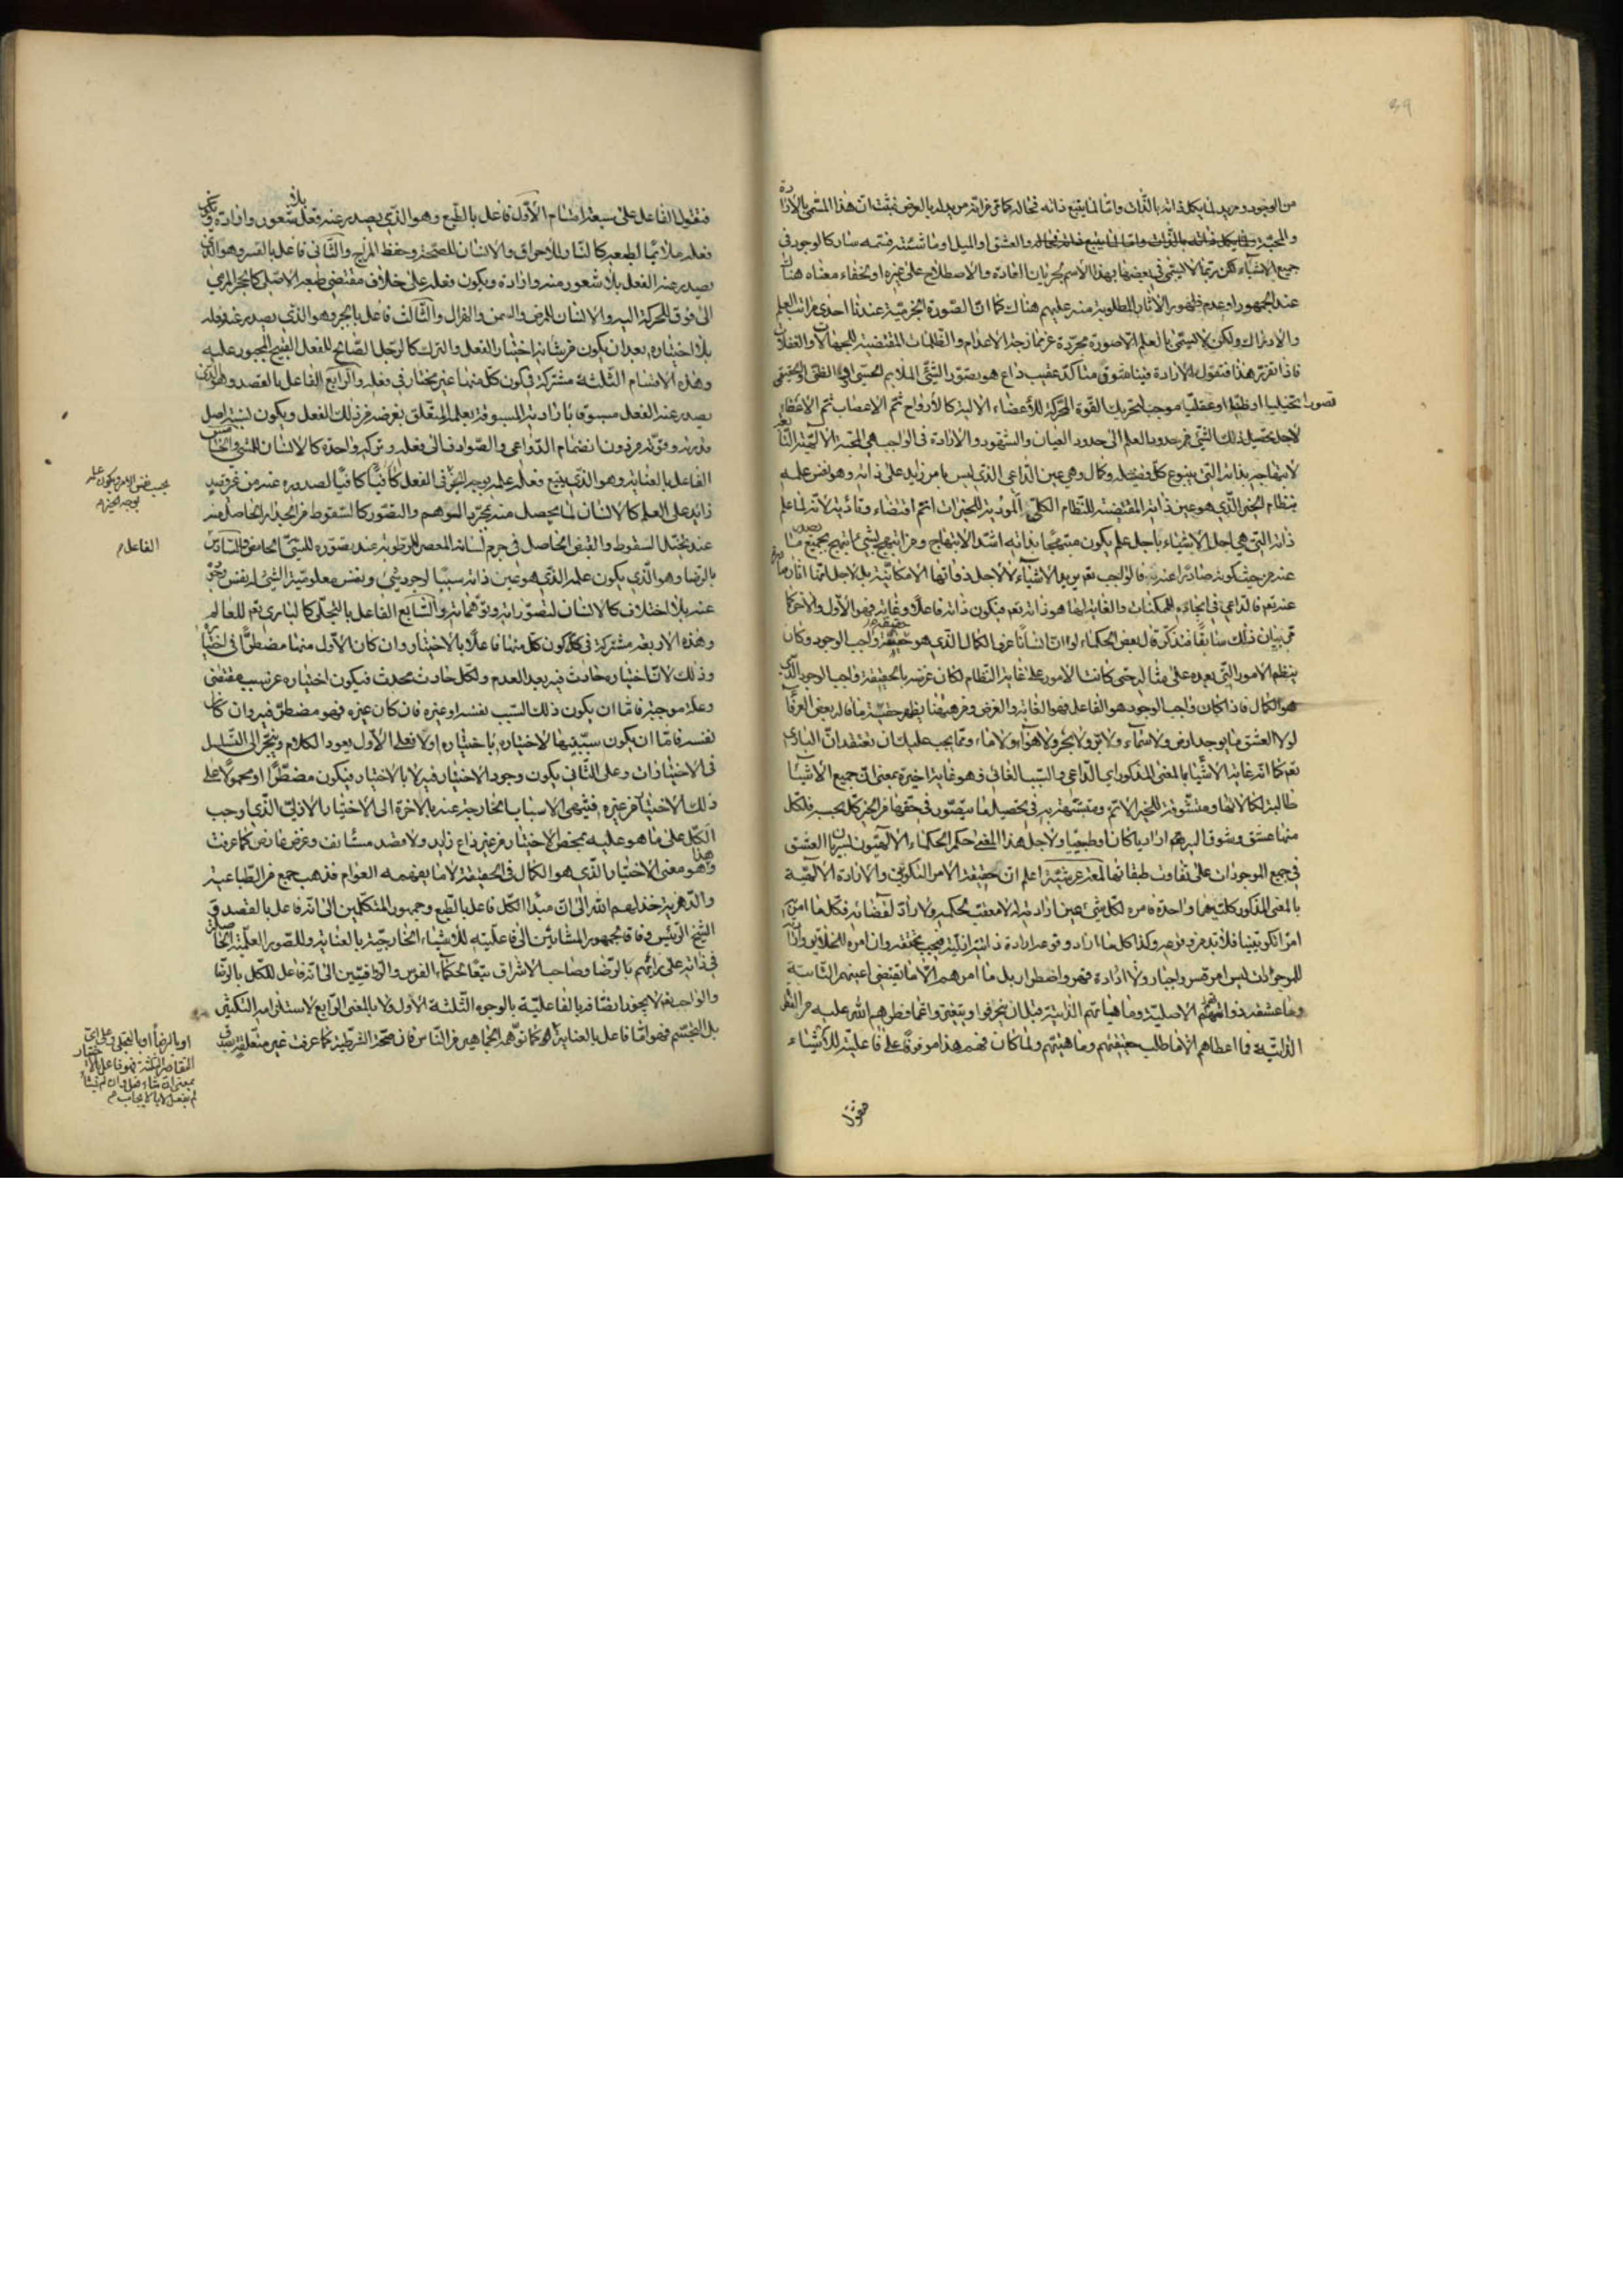 39
من الوجود ويريد لما يكمل ذاته بالذات واما لما يتبع ذاته فحاله كما مر فانه مريد له بالعرض فثبت ان هذا المسمى بالارادة
والمحبة والعشق او الميل او ما شئت فسمه سار كالوجود في
جميع الاشياء لكن ربما لا يسمى في بعضها بهذا الاسم لجريان العادة والاصطلاح على غيره او لخفاء معناه هناك
عند الجمهور او عدم ظهور الآثار المطلوبة منه عليهم هناك كما ان الصورة الجرمية عندنا احدى مراتب العلم
والادراك ولكن لا يسمى بالعلم الا صورة مجردة عن ممازجة الاعدام والظلمات المقتضية للجهالات والغفلات
فاذا تقرر هذا فنقول الارادة فينا شوق متاكد عقيب داع هو تصور الشئ الملايم
تصورا تخيليا او ظنيا او عقليا موجب لتحريك القوة المحركة للأعضاء الآلية كالارواح ثم الاعصاب ثم الاعضاء
لاجل تحصيل ذلك الشئ
لابتهاجه بذاته التى ينبوع كل فضيلة وكمال وهي عين الداعي الذي ليس بامر زايد على ذاته وهو نفس علمه
بنظام الخير الذي هو عين ذاته المقتضية للنظام الكلي المؤدية للخيرات اتم اقتضاء وتأدية لانه لما علم
ذاته التى هي اجل الاشياء باجل علم يكون مبتهجا بذاته اشد الابتهاج ومن ابتهج بشئ ابتهج بجميع ما يصدر
عنه من حيث كونه صادرا عنه فالواجب تعم يريد الاشياء لا لاجل ذواتها الامكانية بل لاجل انها آثار
عنه تعم فالداعي في ايجاده للممكنات والغاية ايضا هو ذاته تعم فيكون ذاته فاعلا وغاية فهو الاول والآخر كما
مر بيان ذلك سابقا فتذكر قال بعض الحكماء لو ان انسانا عرف الكمال الذي هو حقيقة واجب الوجود وكان
ينظم الامور التى بعده على مثاله حتى كانت الامور على غاية النظام لكان غرضه بالحقيقة واجب الوجود الذي
هو الكمال فاذا كان واجب الوجود هو الفاعل فهو الغاية والغرض ومن هيهنا يظهر حقيقة ما قاله بعض العرفاء
لولا العشق ما يوجد ارض ولا سماء ولا بر ولا بحر ولا هواء ولا ماء ومما يجب عليك ان تعتقد ان البارى
تعم كما انه غاية الاشياء بالمعنى المذكور اي الداعي والسبب الغائي فهو غاية اخيرة بمعنى ان جميع الاشياء
طالبة لكمالاتها ومتشوقة للخير الاتم ومتشبهة به في تحصيل ما يتصور في حقها من الخير كل بحسبه فلكل
منها عشق وشوق اليه تعم اراديا كان او طبيعيا ولاجل هذا المعنى حكم الحكماء الالهيون بسريان العشق
في جميع الموجودات على تفاوت طبقاتها لمعة عرشية اعلم ان حقيقة الامر التكويني والارادة الالهية
بالمعنى المذكور كلتيهما واحدة فامره لكل شئ عين ارادته له لا معقب لحكمه ولا راد لقضائه فكل ما امر به
امرا تكوينيا فلا بد من وقوعه وكذا كل ما اراد وقوعه ارادة ذاتية ازلية فيجب تحققه وان امره للخلائق وارادته
للموجودات ليس امر قسر واجبار ولا ارادة قهر واضطرار بل ما امرهم الا ما تقتضى اعينهم الثابتة
وما عشقته ذواتهم الاصلية وماهياتهم الذاتية قبل ان ينحرفوا
الذاتية فما اعطاهم الا ما طلب حقيقتهم وماهيتهم ولما كان فهم هذا موقوفا على فاعليته للأشياء
فنقول
فنقول الفاعل على سبعة اقسام الاول فاعل بالطبع وهو الذي يصدر عنه فعل بلا شعور وارادة ويكون
فعله ملائما لطبعه كالنار للاحراق والانسان للصحة وحفظ المزاج والثانى فاعل بالقسر وهو الذي
يصدر عنه الفعل بلا شعور منه وارادة ويكون فعله على خلاف مقتضى طبعه الاصلى كالحجر المرمى
الى فوق للحركة اليه والانسان للمرض والسمن والهزال والثالث فاعل بالجبر وهو الذي يصدر عنه فعله
بلا اختياره بعد ان يكون من شانه اختيار الفعل والترك كالرجل الصالح للفعل القبيح المجبور عليه
وهذه الاقسام الثلثة مشتركة في كون كل منها غير مختار في فعله والرابع الفاعل بالقصد وهو الذي
يصدر عنه الفعل مسبوقا بارادته المسبوقة بعلمه المتعلق بغرضه من ذلك الفعل ويكون نسبة اصل
قدرته وقوته من دون انضمام الدواعي والصوارف الى فعله وتركه واحدة كالانسان للمشى والخامس
الفاعل بالعناية وهو الذي يتبع فعله علمه بوجه الخير في الفعل كافيا لصدوره عنه من غير قصد
زايد على العلم كالانسان لما يحصل منه بمجرد التوهم والتصور كالسقوط من الجدار الحاصل منه
عند تخيل السقوط والقبض الحاصل في جرم لسانه المعصر للرطوبة عند تصوره للشئ الحامض والسادس
بالرضا وهو الذي يكون علمه الذي هو عين ذاته سببا لوجود شئ ونفس معلومية الشئ له نفس وجوده
عنه بلا اختلاف كالانسان لتصوراته وتوهماته والسابع الفاعل بالتجلى كالبارى تعم للعالم
وهذه الاربعة مشتركة في كون كل منها فاعلا بالاختيار وان كان الاول منها مضطرا في اختياره
وذلك لان اختياره حادث فيه بعد العدم ولكل حادث محدث فيكون اختياره عن سبب مقتض
وعلة موجبة فاما ان يكون ذلك السبب نفسه او غيره فان كان غيره فهو مضطر فيه وان كان
نفسه فاما ان يكون سببيتها لاختياره باختياره اولا فعلى الاول يعود الكلام وينجر الى التسلسل
في الاختيارات وعلى الثانى يكون وجود الاختيار فيه لا بالاختيار فيكون مضطرا او محمولا على
ذلك الاختيار من غيره فينتهى الاسباب الخارجة عنه بالآخرة الى الاختيار الازلى الذي اوجب
الكل على ما هو عليه بمحض الاختيار من غير داع زايد ولا قصد مستانف وغرض عارض كما عرفت
وهذا هو معنى الاختيار الذي هو الكمال في الحقيقة لا ما يفهمه العوام فذهب جمع من الطباعية
والدهرية خذلهم الله الى ان مبدأ الكل فاعل بالطبع وجمهور المتكلمين الى انه فاعل بالقصد و
الشيخ الرئيس وفاقا لجمهور المشائين الى فاعليته للأشياء الخارجية بالعناية وللصور العلمية الحاصلة
في ذاته على رائهم بالرضا وصاحب الاشراق تبعا لحكماء الفرس والرواقيين الى انه فاعل للكل بالرضا
والواجب تعم لا يجوز اتصافه بالفاعلية بالوجوه الثلثة الاول ولا بالمعنى الرابع لاستلزامه التكثر
بل التجسم فهو اما فاعل بالعناية كما توهمه الجماهير من الناس فان صحة الشرطية كما عرفت غير متعلقة
بحسب نفس الامر ويكون علمه
بوجه الخير
الفاعل
او بالرضا او بالتجلى وعلى اى
التقادير الثلثة فهو فاعل بالاختيار
بمعنى ان شاء فعل وان لم يشأ
لم يفعل لا بالايجاب